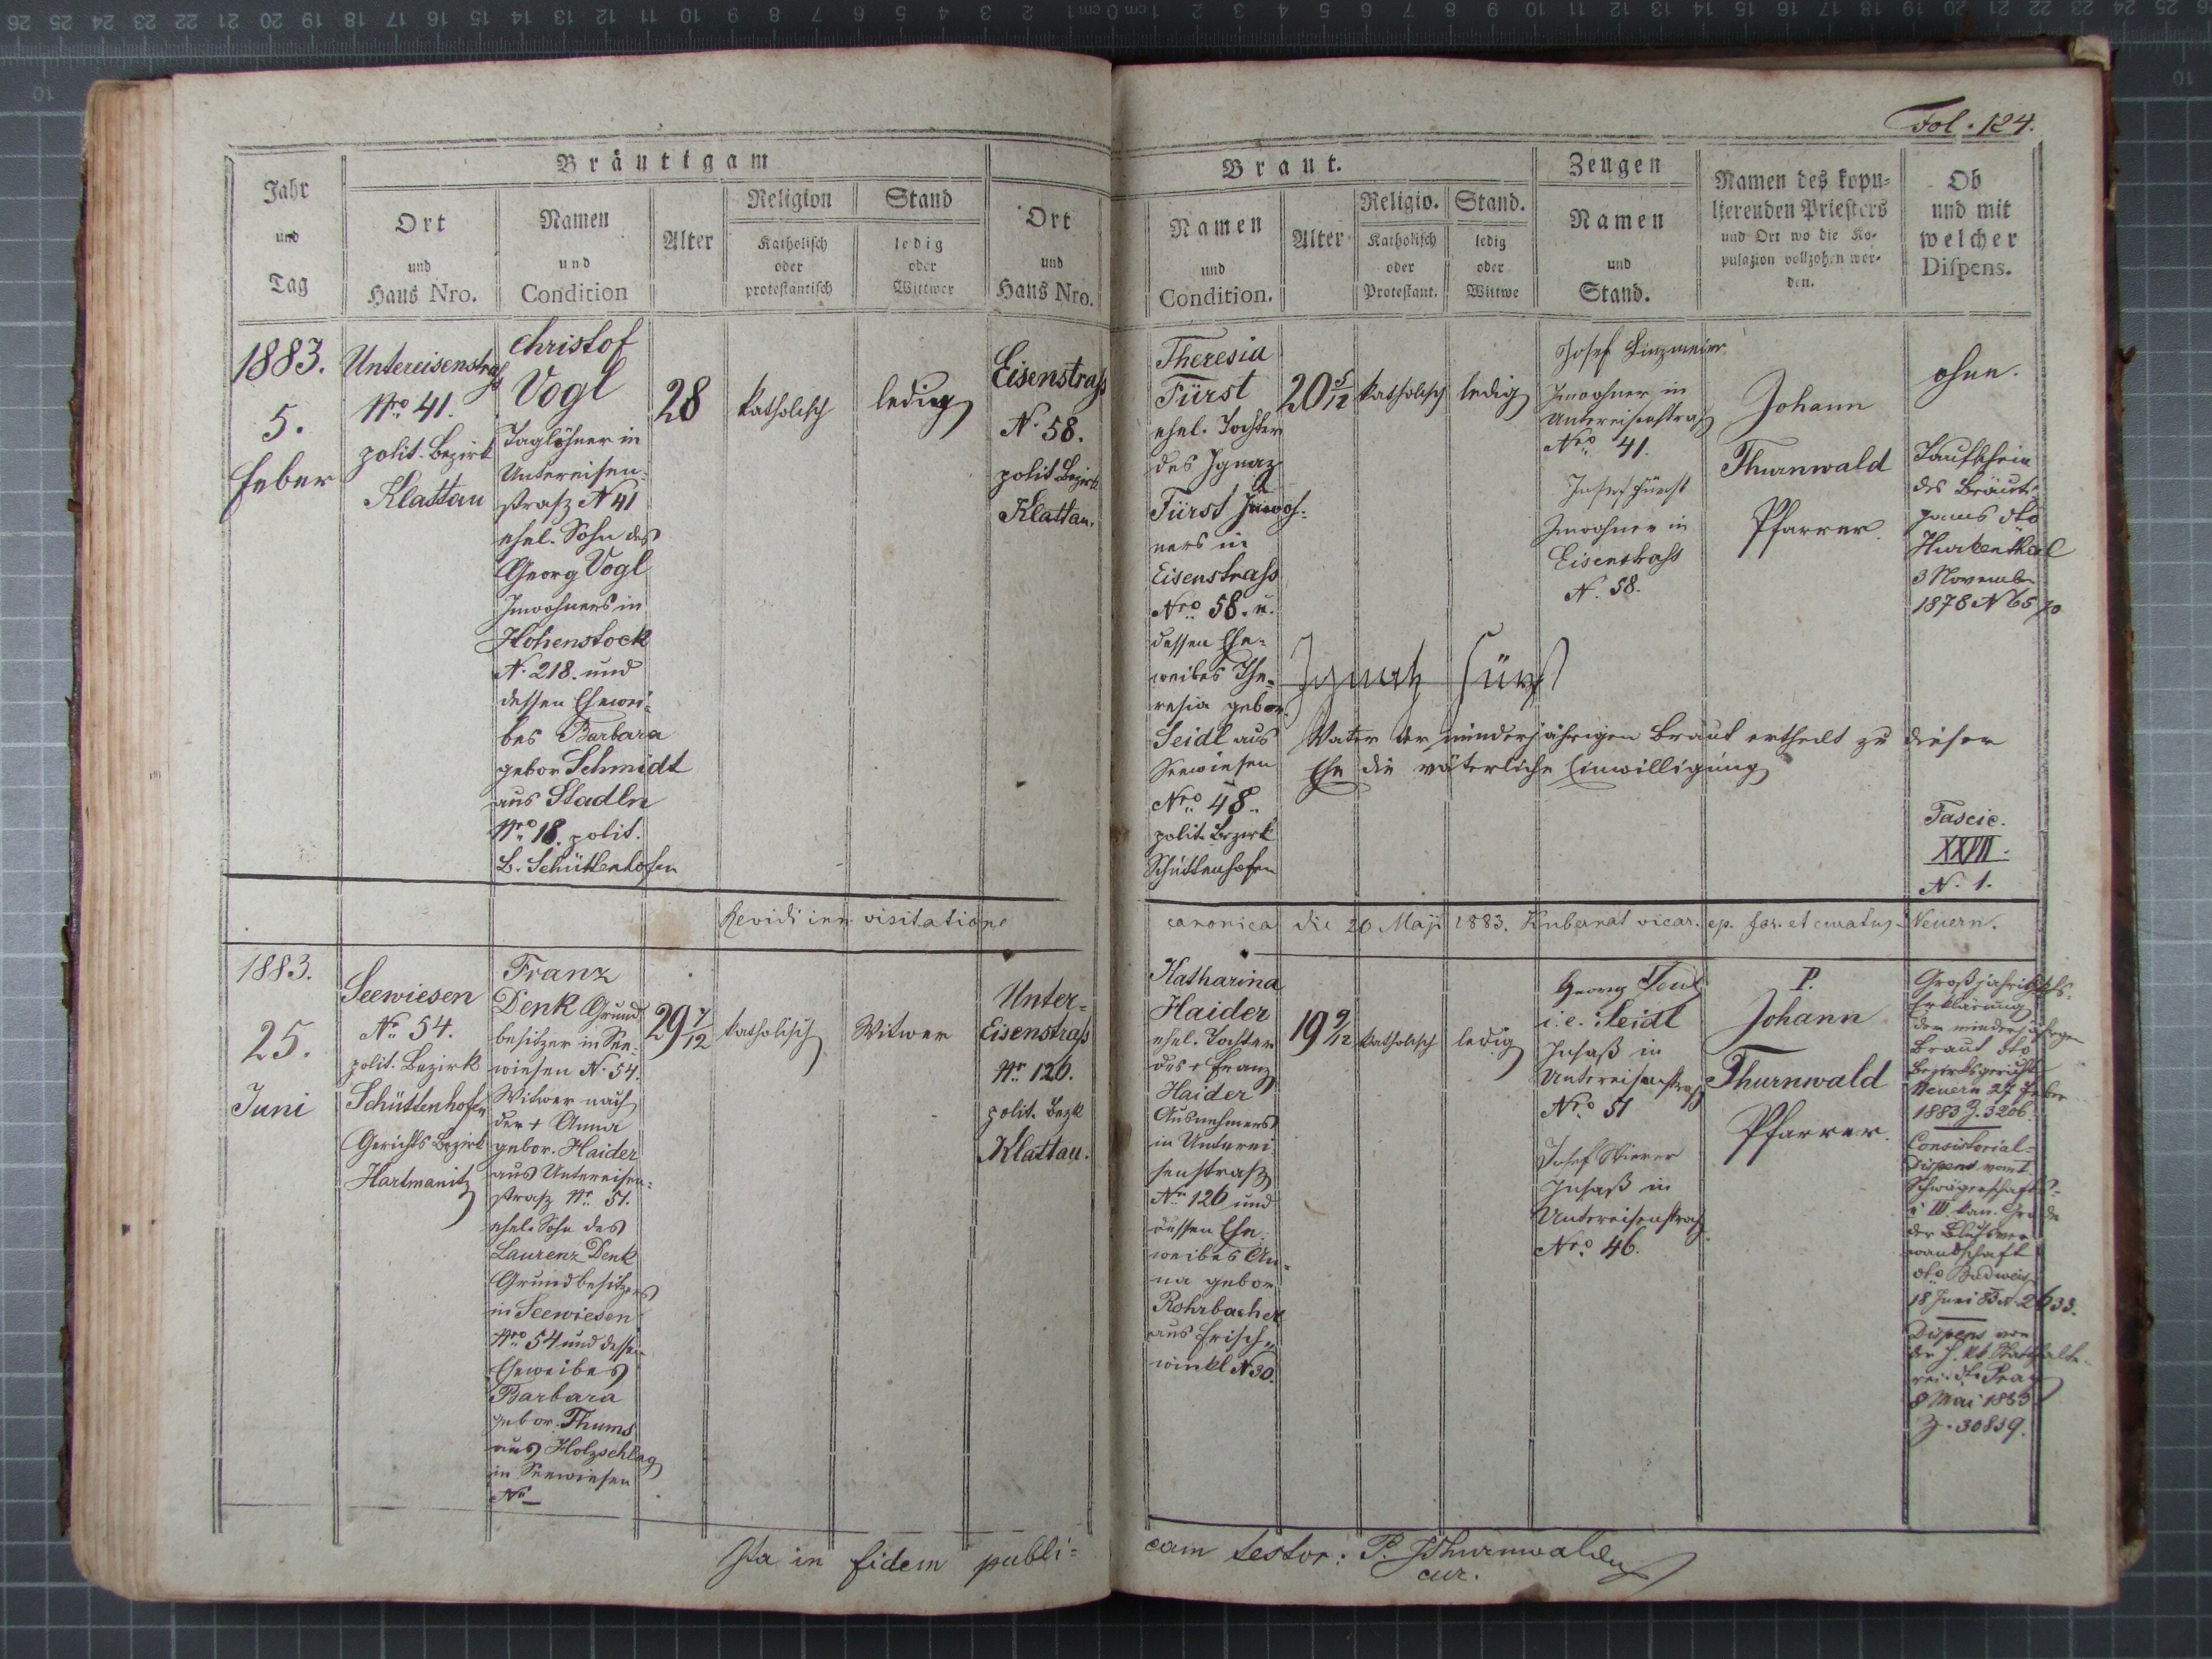 Fol. 124.
Bräutigam
Braut.
Zeugen
Jahr
und
Tag
Ort
und
Haus Nro.
Namen
und
Condition
Alter
Religion
Katholisch
oder
protestantisch
Stand
ledig
oder
Wittwer
Ort
und
Haus Nro.
Namen
und
Condition.
Alter
Religio.
Katholisch
oder
Protestant.
Stand.
ledig
oder
Wittwe
Namen
und
Stand.
Namen des kopu-
lierenden Priesters
und Ort wo die Ko-
pulazion vollzohen wor-
den.
Ob
und mit
welcher
Dispens.
1883.
5.
Feber
Untereisenstraß
Nro 41.
polit. Bezirk
Klattau
Christof
Vogl
Taglöhner in
Untereisen-
straß N 41
ehel. Sohn des
Georg Vogl
Inwohners in
Hohenstock
N. 218. und
dessen Ehewei-
bes Barbara
gebor Schmidt
aus Stadln
Nro 18. polit.
B. Schüttenhofen
28
katholisch
ledig
Eisenstraß
N. 58.
polit Bezirk
Klattau.
Theresia
Fürst
ehel. Tochter
des Ignaz
Fürst Inwoh-
ners in
Eisenstraß
Nro 58. u.
dessen Ehe-
weibes The-
resia gebor.
Seidl aus
Seewiesen
Nro 48.
polit. Bezirk
Schüttenhofen
20 5/12
katholisch
ledig
Josef Linzmeier
Inwohner in
Untereisenstraß
Nro 41.
Josef Fürst
Inwohner in
Eisenstraß
N. 58.
Johann
Thurnwald
Pfarrer.
ohne.
Taufschein
des Bräuti-
gams dto
Hurkenthal
3 November
1878 N 65
Ignatz Fürst
Vater der minderjährigen Braut ertheilt zu dieser
Ehe die väterliche Einwilligung
Fascic.
XXVII.
N. 1.
Revidi in visitatione
canonica die 20 Maji 1883. Kubernat vicar. ep. for. et curatus Neuern.
1883.
25.
Juni
Seewiesen
No 54.
polit. Bezirk
Schüttenhofen
Gerichts Bezirk
Hartmanitz
Franz
Denk Grund
besitzer in See-
wiesen N. 54.
Witwer nach
der + Anna
gebor. Haider
aus Untereisen-
straß Nr. 51.
ehel. Sohn des
Laurenz Denk
Grundbesitzers
in Seewiesen
Nro 54 und dessen
Eheweibes
Barbara
gebor. Thums
aus Holzschlag
in Seewiesen
No —
29 7/12
katholisch
Witwer
Unter-
Eisenstraß
Nr. 126.
polit. Bezk
Klattau.
Katharina
Haider
ehel. Tochter
des + Franz
Haider
Ausnehmers
in Unterei-
senstraß
No 126 und
dessen Ehe-
weibes An-
na gebor.
Rohrbacher
aus Frisch-
winkl N 30.
19 9/12
katholisch
ledig
Georg
i. e. Seidl
Insaß in
Untereisenstraß
Nro 51
Josef Stierer
Insaß in
Untereisenstraß
Nro 46.
P.
Johann
Thurnwald
Pfarrer.
Großjährigkeits-
Erklärung
der minderjährigen
Braut dto
Bezirksgericht
Neuern 27 Feber
1883 Z. 3206.
Consistorial-
Dispens vom
Schwägerschafts-
III. kan. Grade
der Blutsver-
wandschaft
dto Budweis
18 Juni 83 N. 2633.
Dispens von
der h. kk Statthalte-
rei dto Prag
8 Mai 1883
Z. 30859.
Ita in fidem publi-
cam testor: P. J Thurnwald
cur.